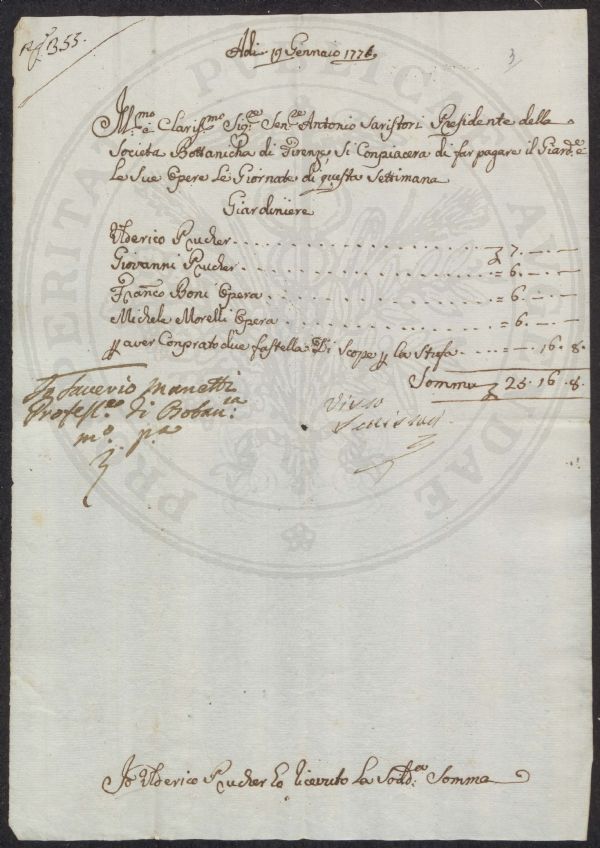 N.º 355.
Adi 19 Gennaio 177
3
Ill.mo e Claris.mo Sig.re Sen.re Antonio Saristori Presidente della
Società Bottanicha di Firenze, Si Conpiacera di far pagare il Giard.e e
Le Sue Opere Le Giornate di questa Settimana
Giardiniere
Ulderico Rucher 7. — —
Giovanni Rucher = 6. — —
Franco Boni Opera = 6. — —
Michele Morelli Opera = 6. — —
aver Conprato due fastella Di Scope La Stufa — 16. 8.
Somma 25. 16. 8.
Saverio Manetti
Profess.re di Botan.ca
m.o pa
Io Ulderico Rucher ho riceuto La Sodd.a Somma
PUBLICAE